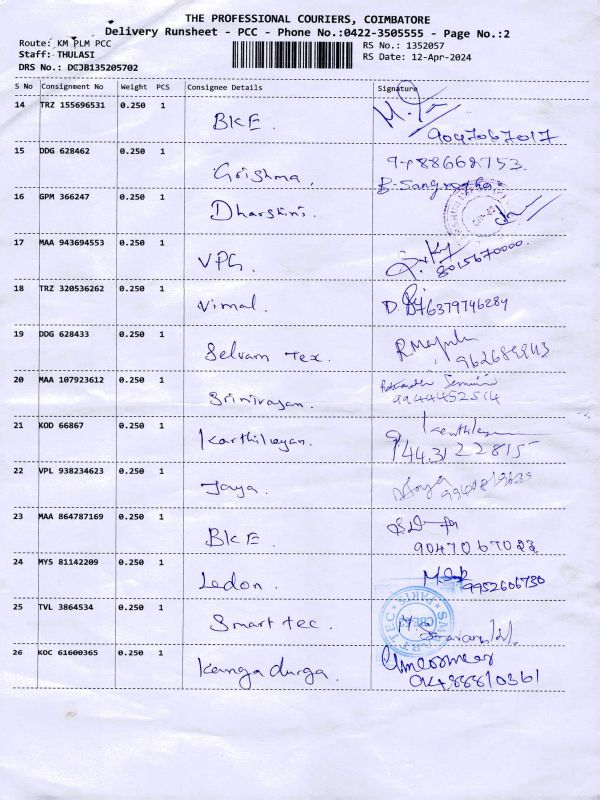 THE PROFESSIONAL COURIERS, COIMBATORE
Delivery Runsheet - PCC - Phone No.:0422-3505555 - Page No.:2
Route: KM PLM PCC
RS No.: 1352057
Staff: THULASI
RS Date: 12-Apr-2024
DRS No.: DCJB135205702
S No Consignment No Weight PCS Consignee Details Signature
14 TRZ 155696531 0.250 1 BKE.
9047067017
15 DDG 628462 0.250 1 Grishma.
16 GPM 366247 0.250 1 Dharshini.
17 MAA 943694553 0.250 1 VPG.
8015670000.
18 TRZ 320536262 0.250 1 Vimal.
6379746284
19 DDG 628433 0.250 1 Selvam tex.
20 MAA 107923612 0.250 1 Srinivasan.
9944452514
21 KOD 66867 0.250 1 Karthikeyan.
9443122815
22 VPL 938234623 0.250 1 Jaya.
23 MAA 864787169 0.250 1 BKE.
9047067023
24 MYS 81142209 0.250 1 Ledon.
9952606730
25 TVL 3864534 0.250 1 Smart tec.
SMART TEC PARTS
CBE
26 KOC 61600365 0.250 1 Kanga durga.